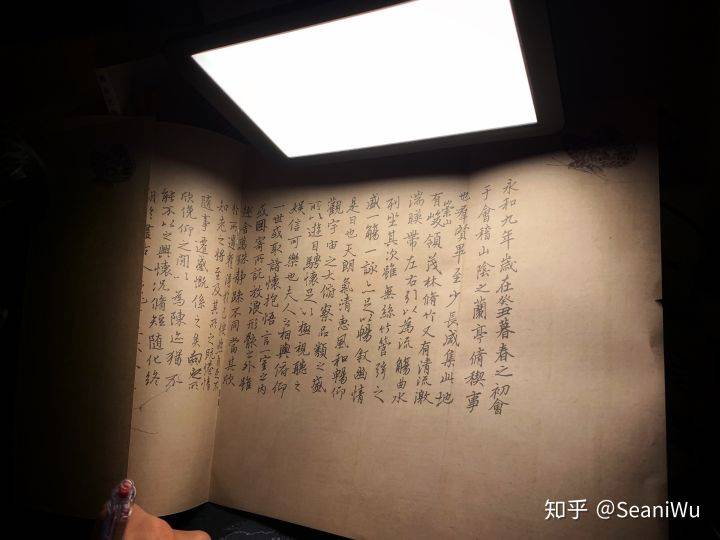 永和九年歲在癸丑暮春之初會
于會稽山陰之蘭亭脩稧事
也羣賢畢至少長咸集此地
有崇山峻領茂林脩竹又有清流激
湍暎帶左右引以為流觴曲水
列坐其次雖無絲竹管弦之
盛一觴一詠亦足以暢敘幽情
是日也天朗氣清惠風和暢仰
觀宇宙之大俯察品類之盛
所以遊目騁懷足以極視聽之
娛信可樂也夫人之相與俯仰
一世或取諸懷抱悟言一室之內
或因寄所託放浪形骸之外雖
趣舍萬殊靜躁不同當其欣
於所遇
知老之將至及其所之既惓情
隨事遷感慨係之矣向之所
欣俛仰之間以為陳迹猶不
能不以之興懷況脩短隨化終
知乎 @SeaniWu